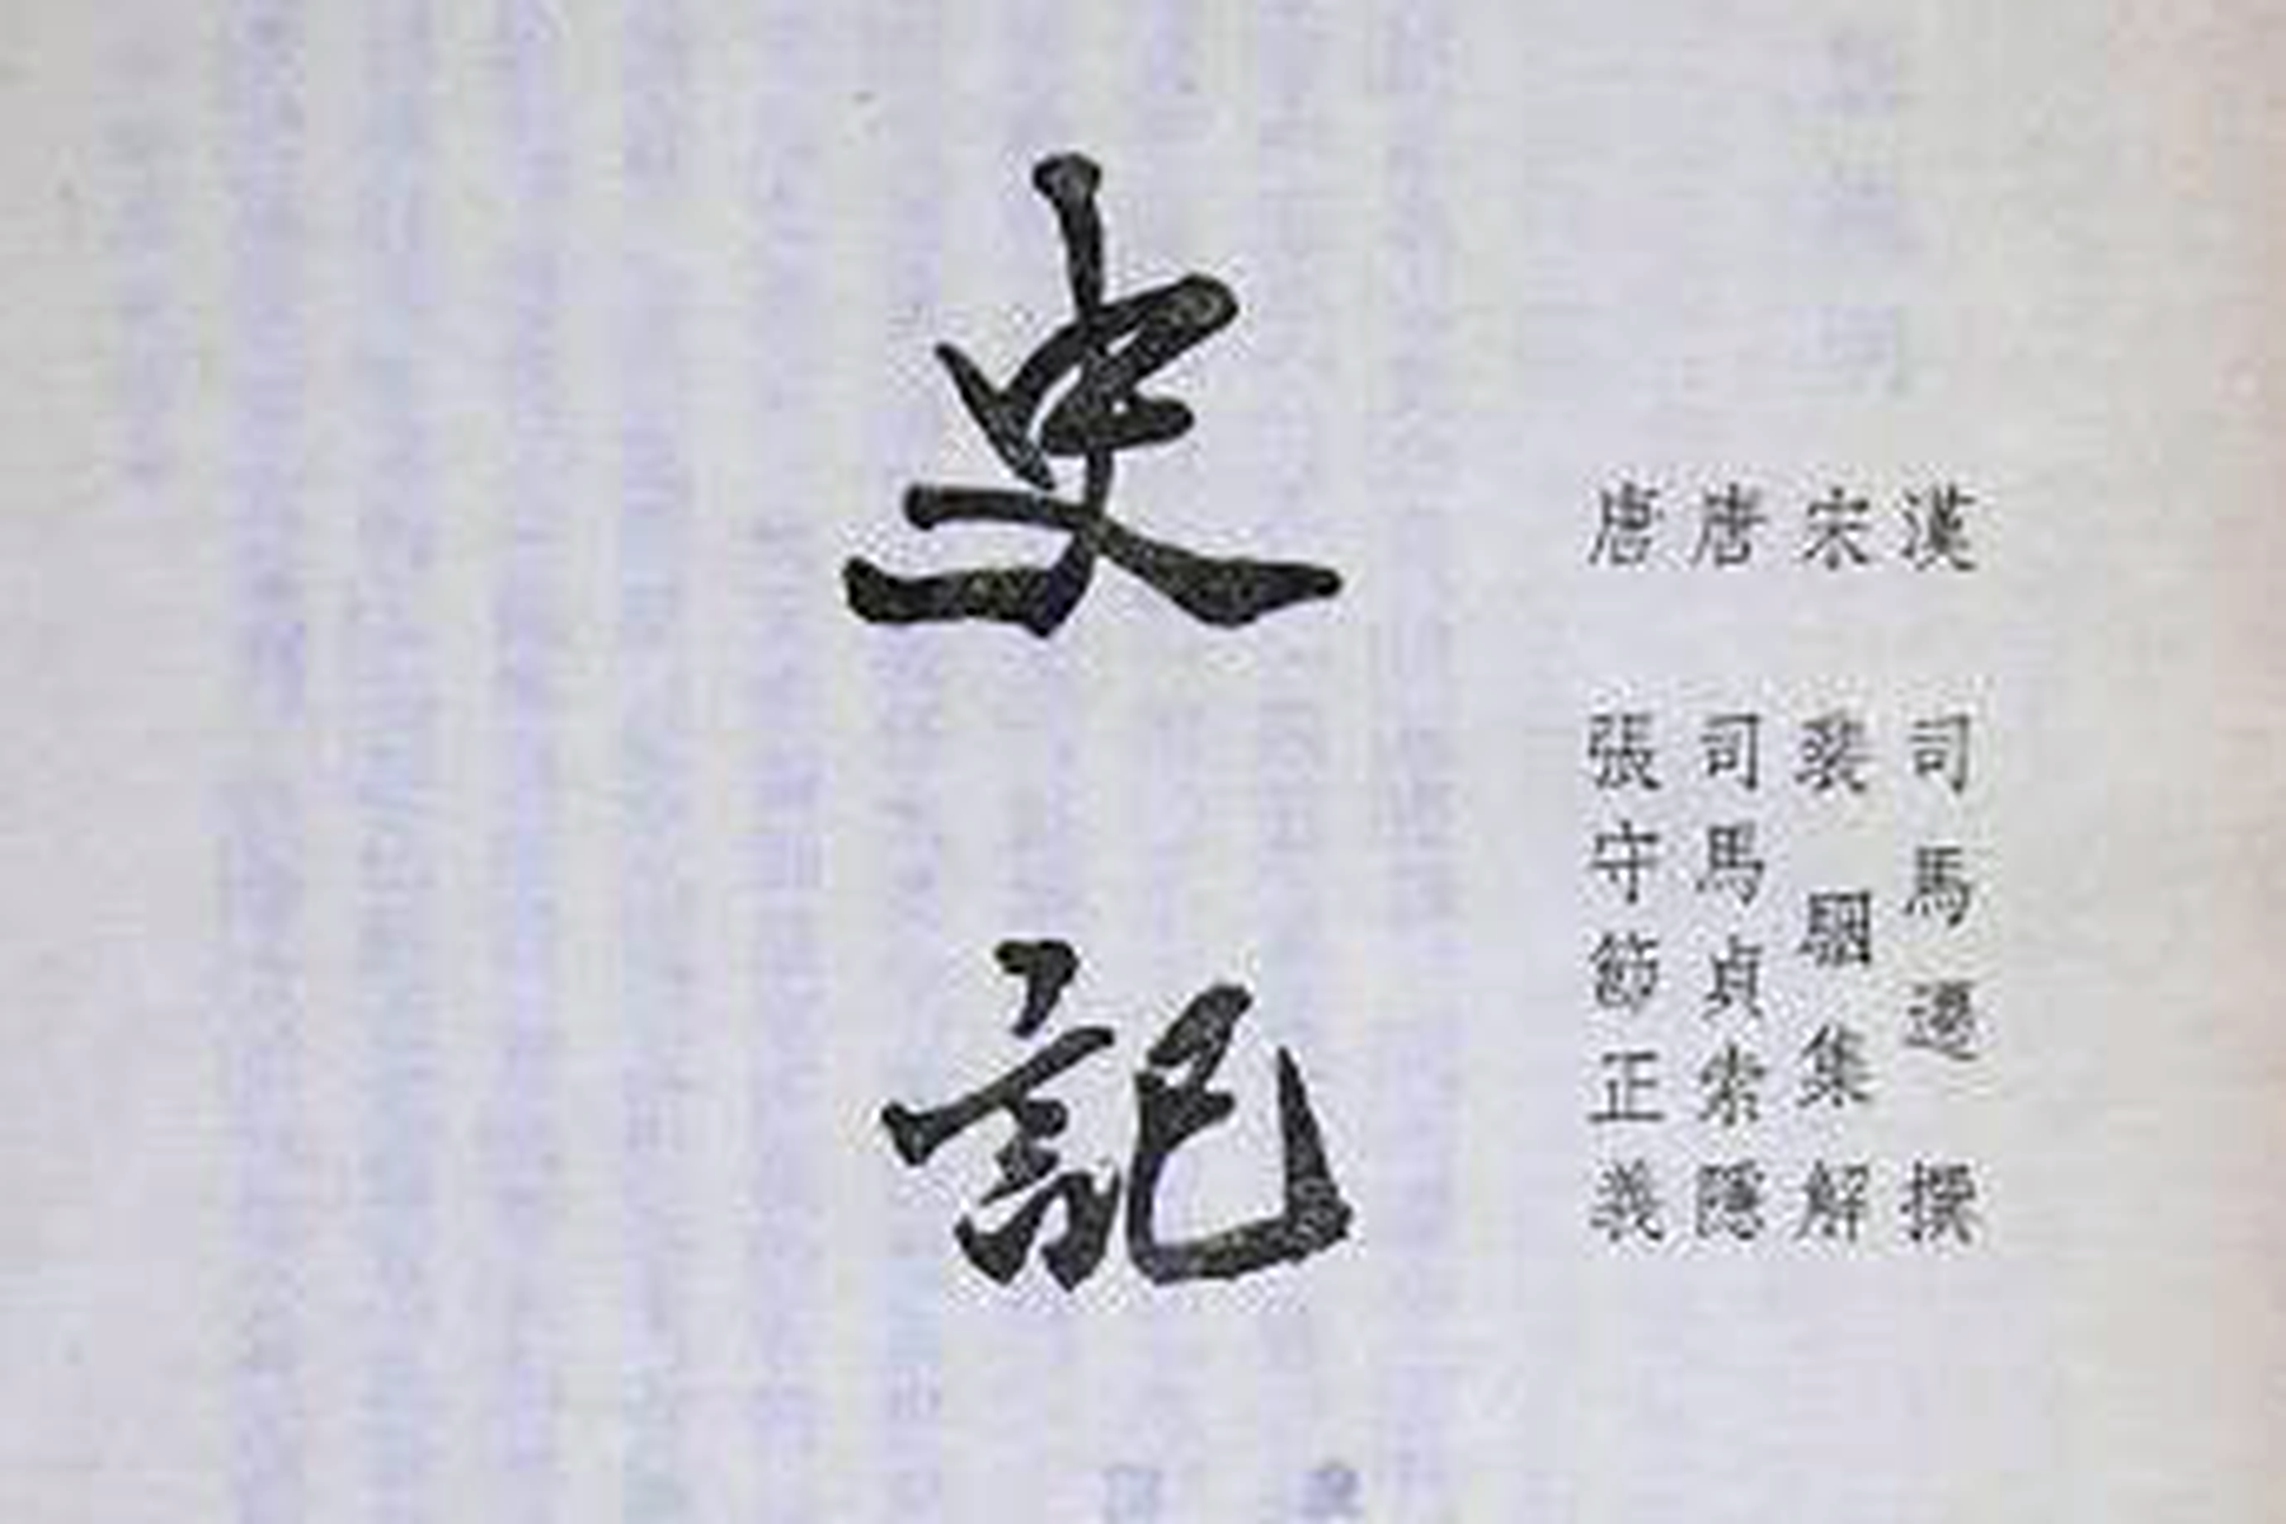 漢 司馬遷 撰
宋 裴駰集解
唐 司馬貞索隱
唐 張守節正義
史記